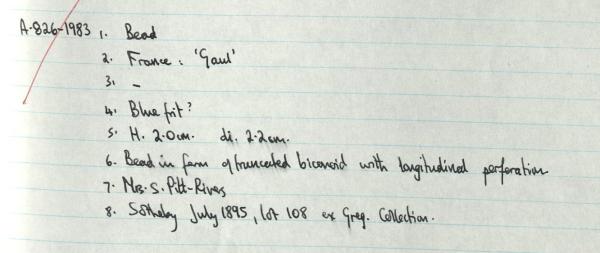 A-826-1983 1. Bead
2. France: 'Gaul'
3. -
4. Blue frit?
5. H. 2.0cm. di. 2.2cm.
6. Bead in form of truncated biconoid with longitudinal perforation
7. Mrs. S. Pitt-Rivers
8. Sotheby July 1895, lot 108 ex Greg. Collection.